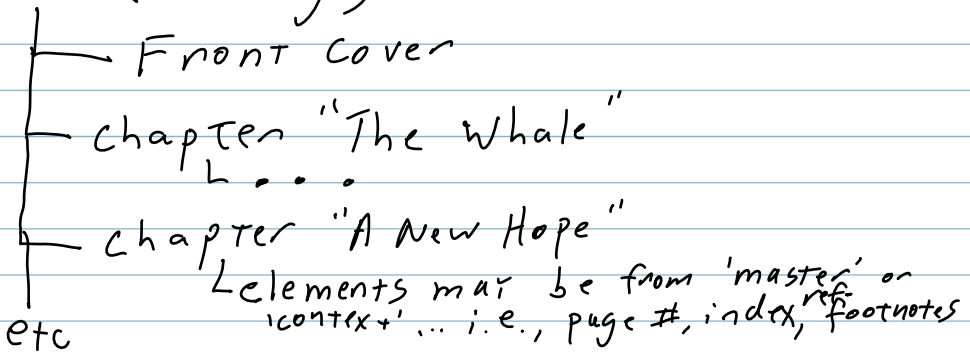 Front Cover
chapter "The Whale"
...
chapter "A New Hope"
elements may be from 'master' or
'context' ... i.e., page #, index, ref. footnotes
etc